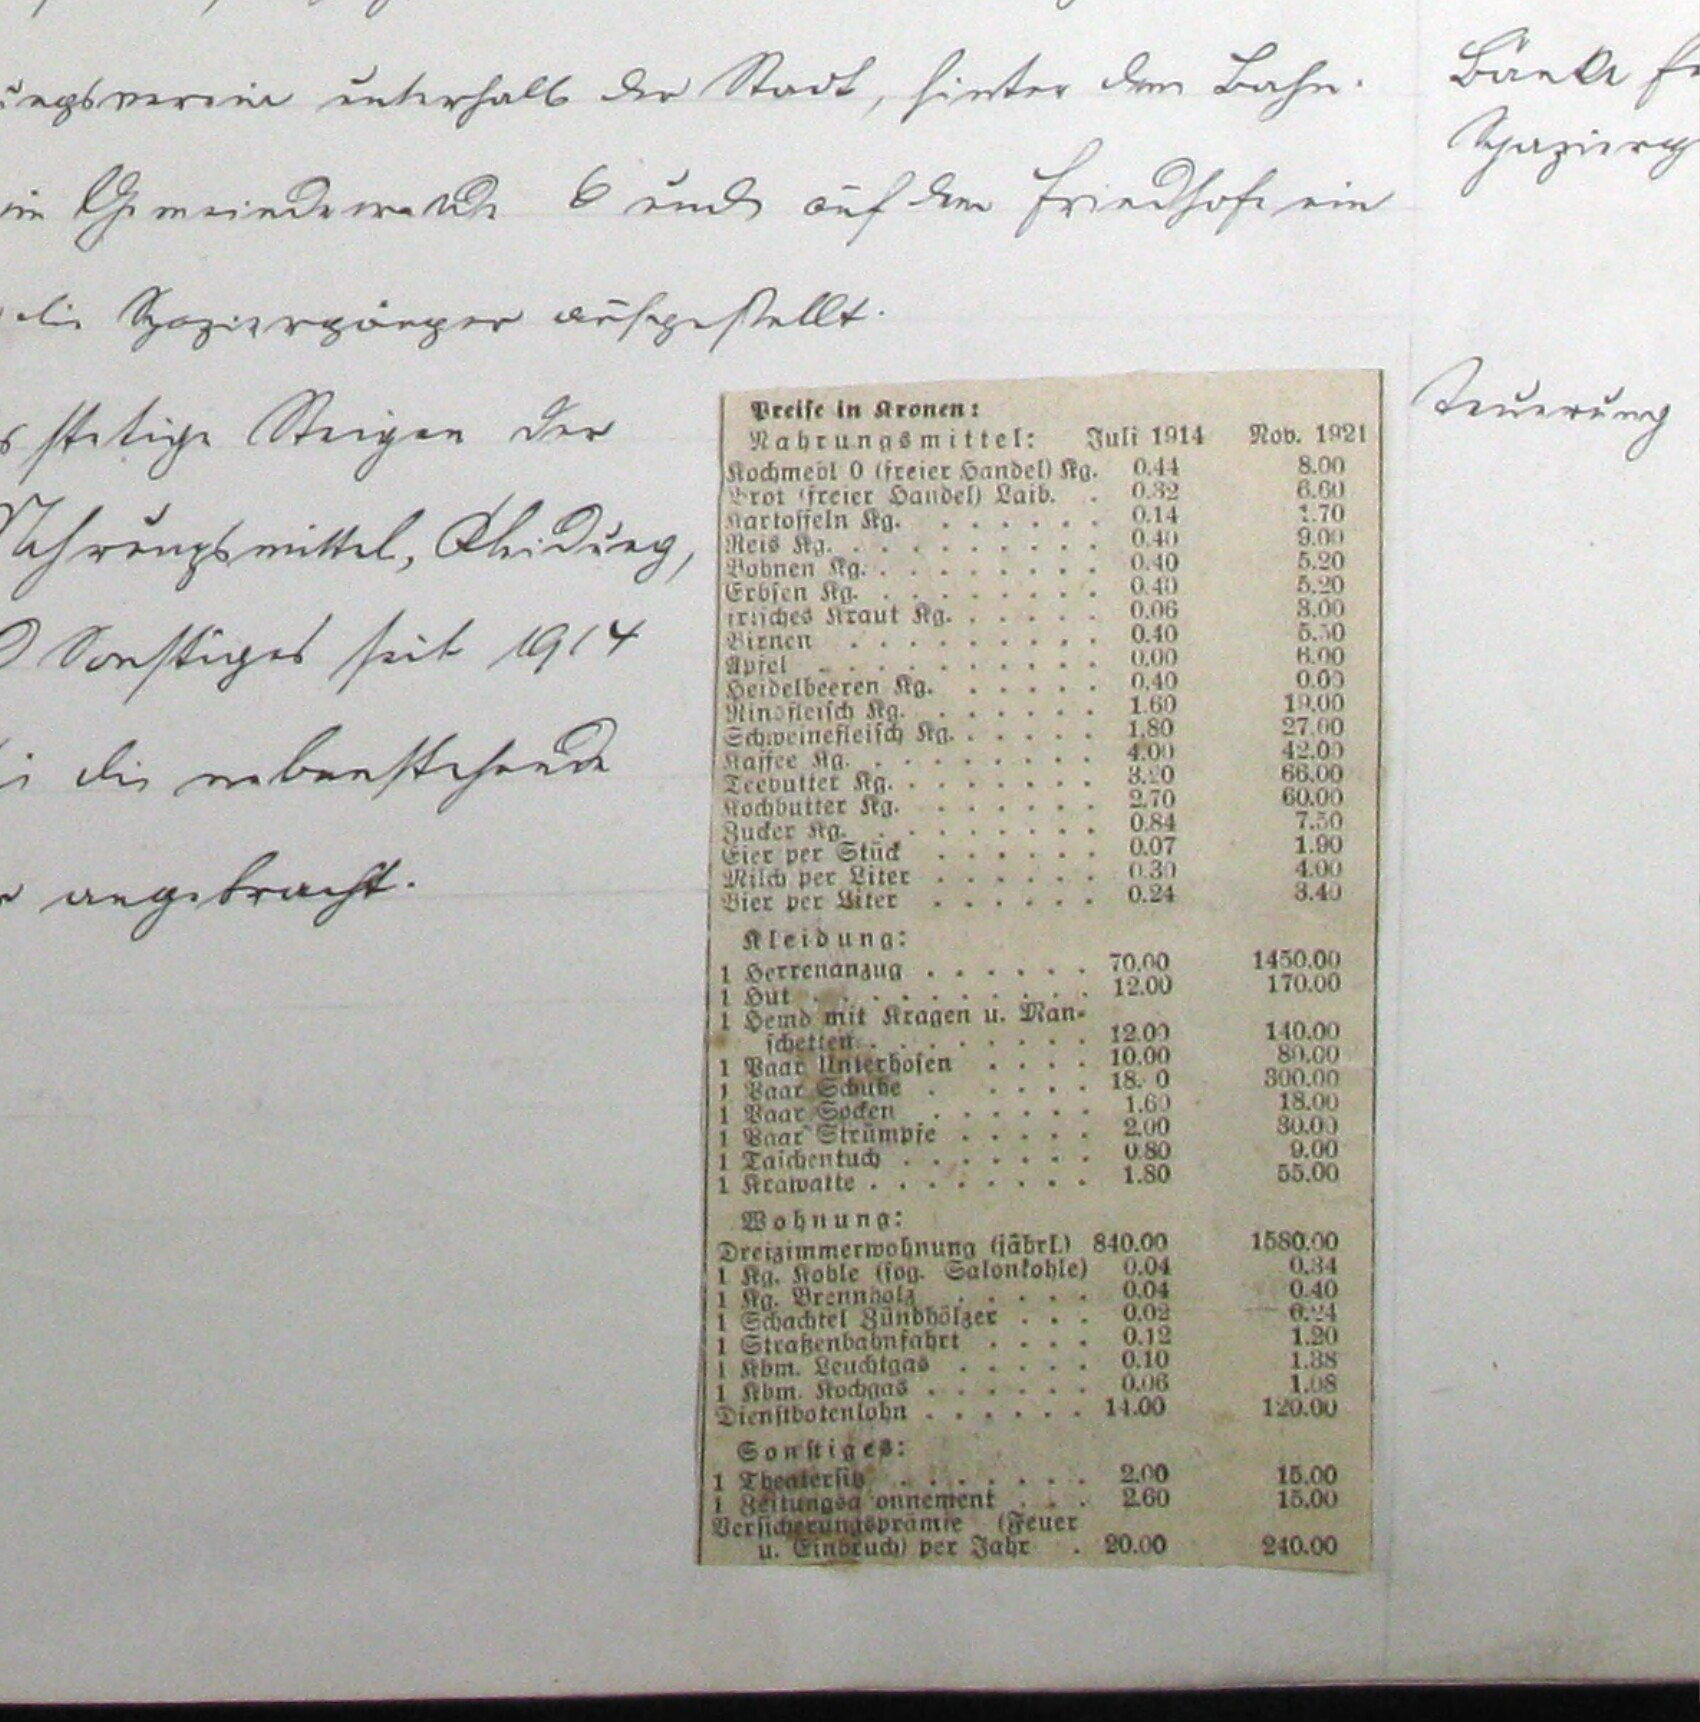 ungsverein unterhalb der Stadt, hinter dem Bahn-
im Gemeindewalde 6 und auf dem Friedhofe ein
die Spaziergänger aufgestellt.
Bänke
Spazierg
stetige Steigen der
Nahrungsmittel, Kleidung,
Sonstiges seit 1914
die nebenstehende
angebracht.
Teuerung
Preise in Kronen:
Nahrungsmittel: Juli 1914 Nov. 1921
Kochmehl 0 (freier Handel) Kg. 0.44 8.00
Brot (freier Handel) Laib. . 0.32 6.60
Kartoffeln Kg. . . . . . . 0.14 1.70
Reis Kg. . . . . . . . . . 0.40 9.00
Bohnen Kg. . . . . . . . . 0.40 5.20
Erbsen Kg. . . . . . . . . 0.40 5.20
Kraut Kg. . . . . . 0.06 3.00
Birnen . . . . . . . . . 0.40 5.50
Äpfel . . . . . . . . . . 0.00 6.00
Heidelbeeren Kg. . . . . . 0.40 0.00
Rindfleisch Kg. . . . . . . 1.60 19.00
Schweinefleisch Kg. . . . . . 1.80 27.00
Kaffee Kg. . . . . . . . . 4.00 42.00
Teebutter Kg. . . . . . . . 3.20 66.00
Kochbutter Kg. . . . . . . 2.70 60.00
Zucker Kg. . . . . . . . . 0.84 7.50
Eier per Stück . . . . . . 0.07 1.90
Milch per Liter . . . . . . 0.30 4.00
Bier per Liter . . . . . . 0.24 3.40
Kleidung:
1 Herrenanzug . . . . . . 70.00 1450.00
1 Hut . . . . . . . . . . 12.00 170.00
1 Hemd mit Kragen u. Man-
schetten . . . . . . . . 12.00 140.00
1 Paar Unterhosen . . . . 10.00 80.00
1 Paar Schuhe . . . . . 18. 0 300.00
1 Paar Socken . . . . . . 1.60 18.00
1 Paar Strümpfe . . . . . 2.00 30.00
1 Taschentuch . . . . . . . 0.80 9.00
1 Krawatte . . . . . . . . 1.80 55.00
Wohnung:
Dreizimmerwohnung (jährl.) 840.00 1580.00
1 Kg. Kohle (sog. Salonkohle) 0.04 0.34
1 Kg. Brennholz . . . . . 0.04 0.40
1 Schachtel Zündhölzer . . . 0.02
1 Straßenbahnfahrt . . . . 0.12 1.20
1 Kbm. Leuchtgas . . . . . 0.10 1.38
1 Kbm. Kochgas . . . . . . 0.06 1.08
Dienstbotenlohn . . . . . . 14.00 120.00
Sonstiges:
1 Theatersitz . . . . . . . 2.00 15.00
1 Zeitungsa onnement . . . 2.60 15.00
Versicherungsprämie (Feuer
u. Einbruch) per Jahr . 20.00 240.00